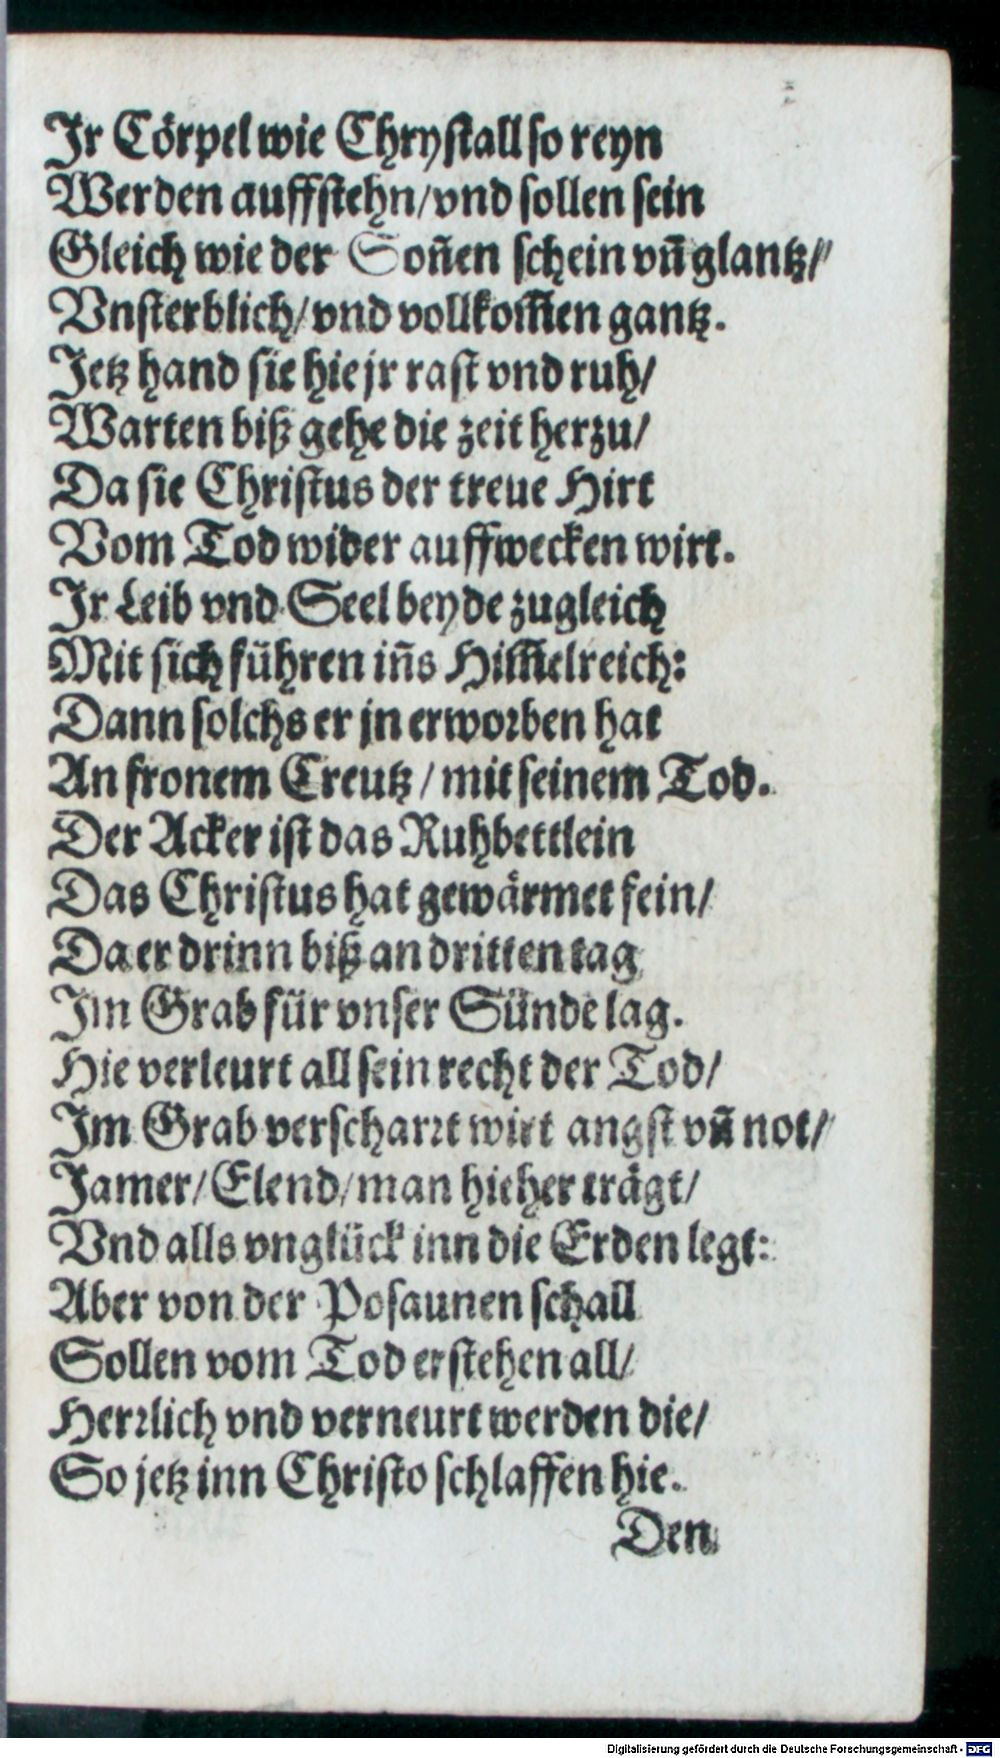 Jr Cörpel wie Chrystall so reyn
Werden auffstehn/vnd sollen sein
Gleich wie der Soñen schein vñ glantz/
Vnsterblich/vnd vollkom̃en gantz.
Jetz hand sie hie jr rast vnd ruh/
Warten biß gehe die zeit herzu/
Da sie Christus der treue Hirt
Vom Tod wider auffwecken wirt.
Jr Leib vnd Seel beyde zugleich
Mit sich führen iñs Him̃elreich:
Dann solchs er jn erworben hat
An fronem Creutz/mit seinem Tod.
Der Acker ist das Ruhbettlein
Das Christus hat gewärmet fein/
Da er drinn biß an dritten tag
Jm Grab für vnser Sünde lag.
Hie verleurt all sein recht der Tod/
Jm Grab verscharrt wirt angst vñ not/
Jamer/Elend/man hieher trägt/
Vnd alls vnglück inn die Erden legt:
Aber von der Posaunen schall
Sollen vom Tod erstehen all/
Herrlich vnd verneurt werden die/
So jetz inn Christo schlaffen hie.
Den
Digitalisierung gefördert durch die Deutsche Forschungsgemeinschaft - DFG